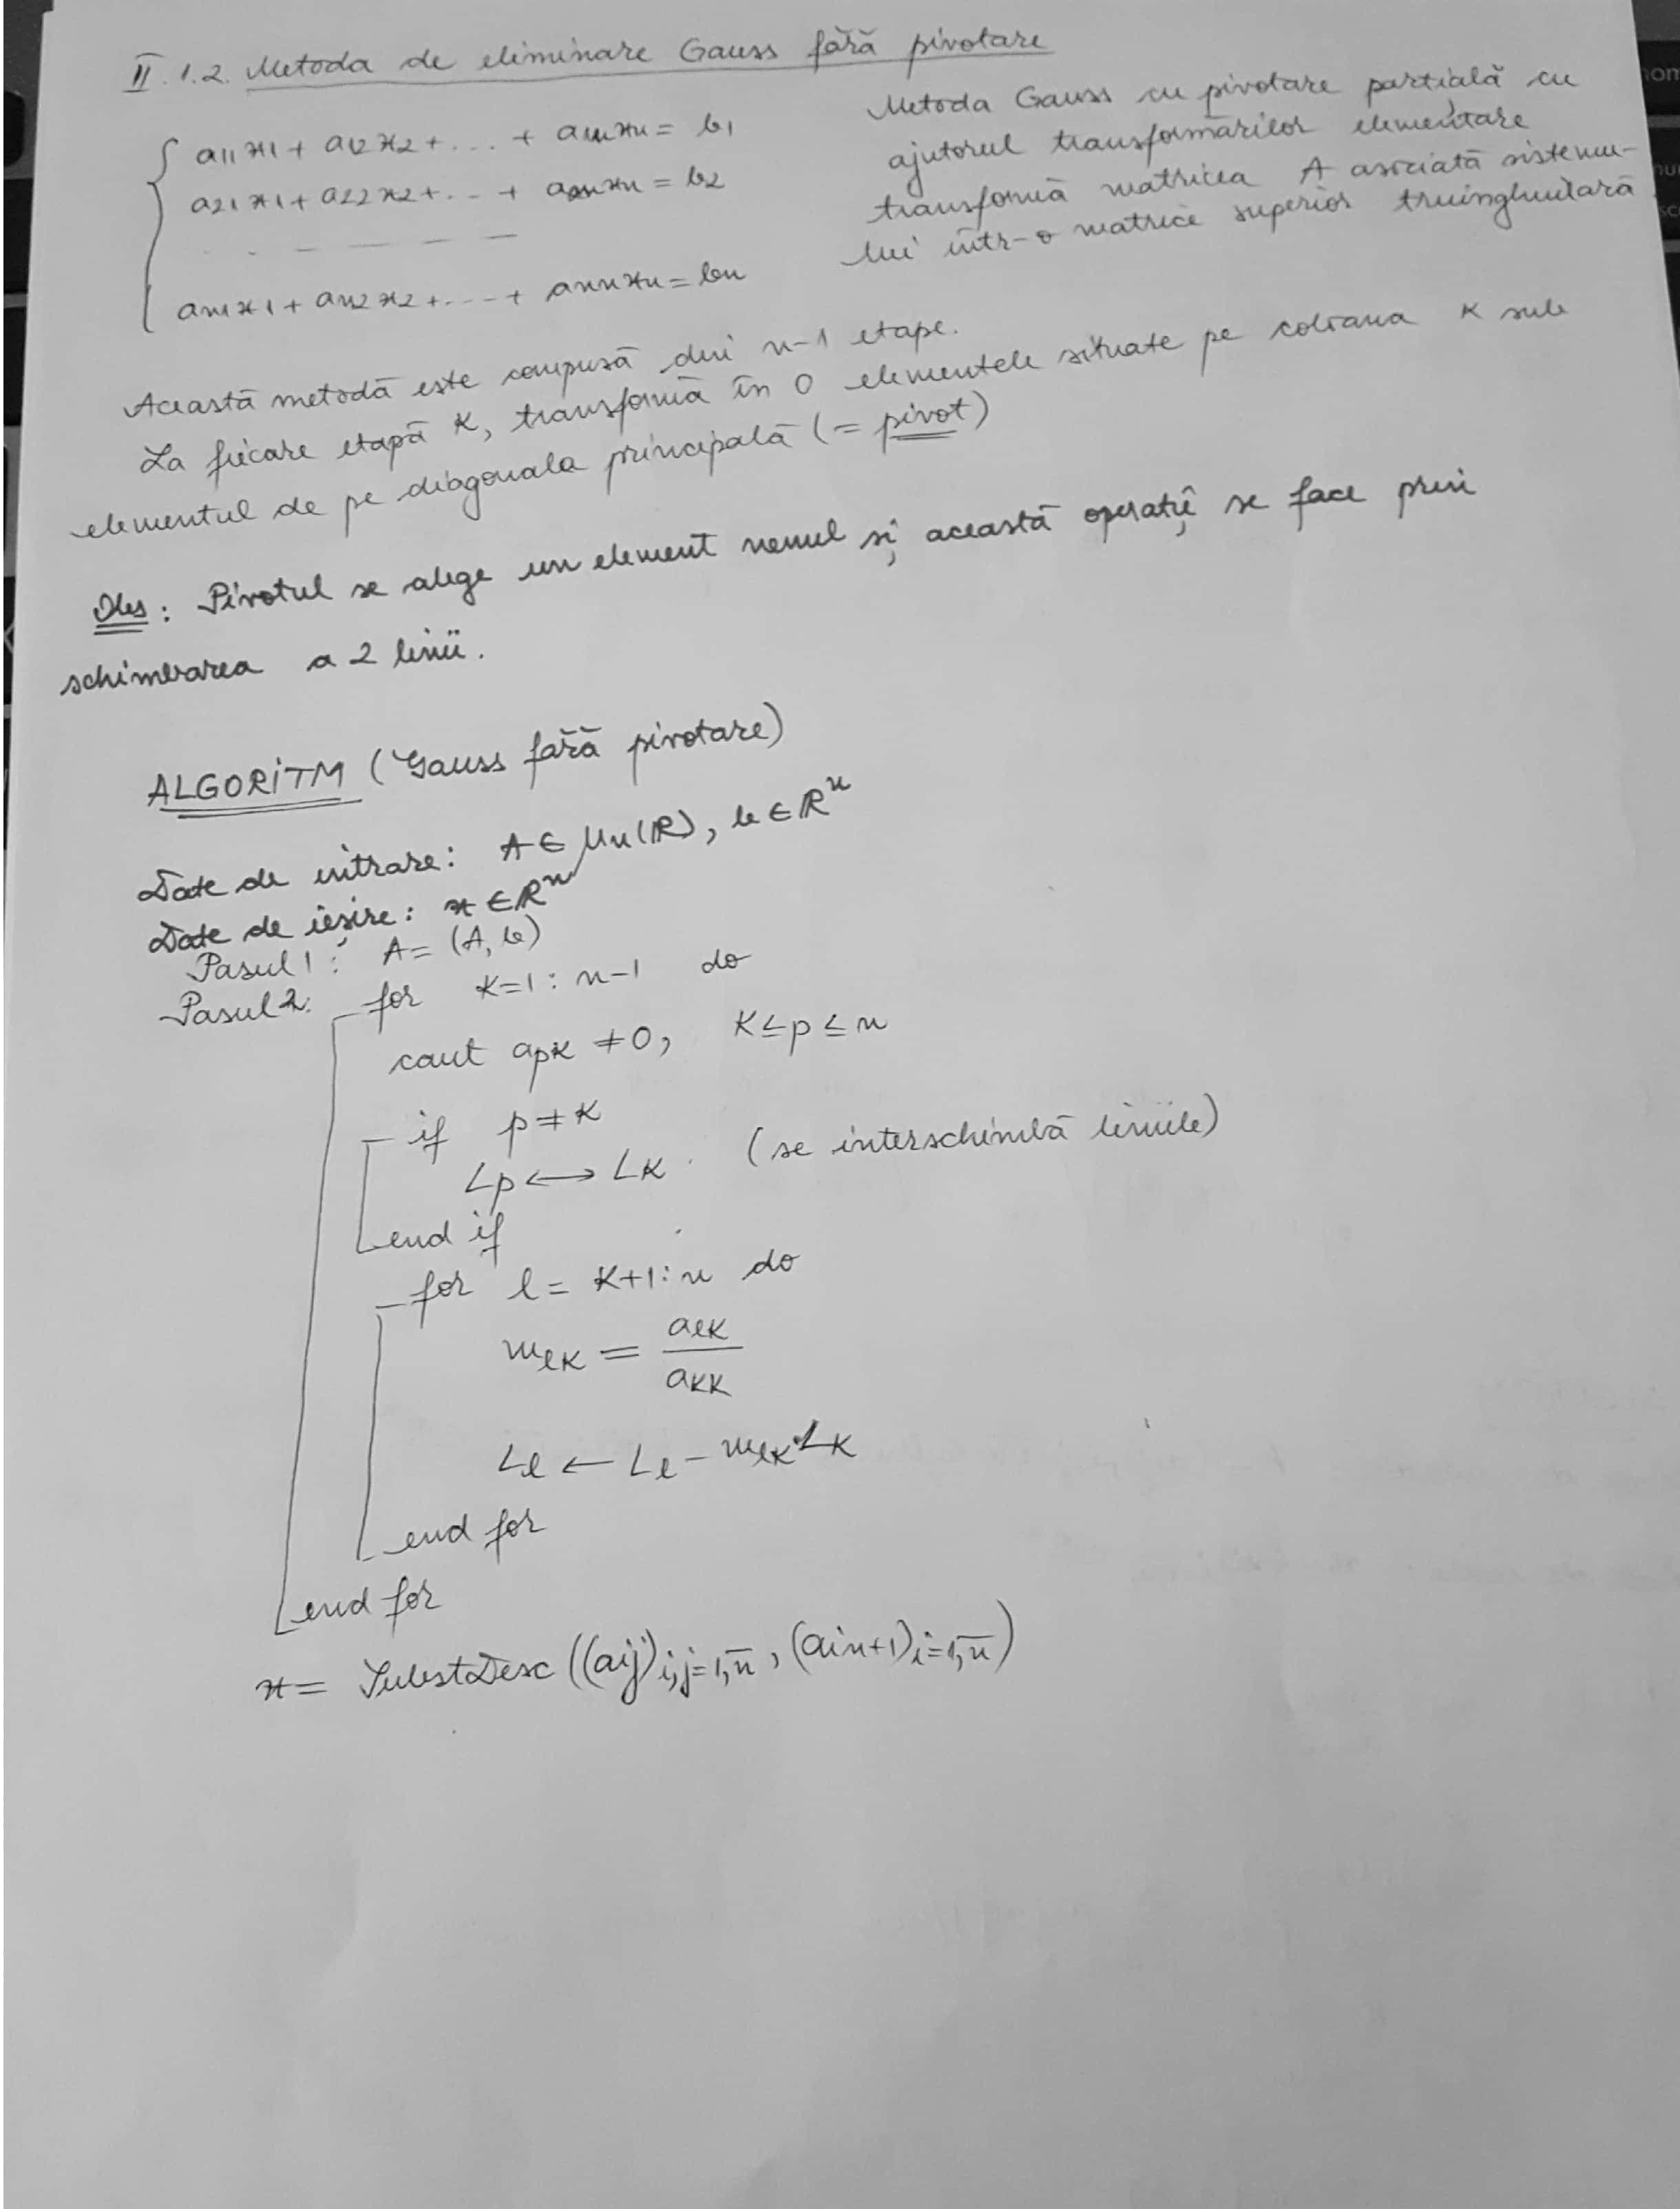 II.1.2. Metoda de eliminare Gauss fără pivotare
a11x1 + a12x2 + ... + a1nxn = b1
a21x1 + a22x2 + ... + a2nxn = b2
- - - - - -
an1x1 + an2x2 + ... + annxn = bn
Metoda Gauss cu pivotare parțială cu
ajutorul transformărilor elementare
transformă matricea A asociată sistemu-
lui într-o matrice superior triunghiulară
Această metodă este compusă din n-1 etape.
La fiecare etapă K, transformă în 0 elementele situate pe coloana K sub
elementul de pe diagonala principală (= pivot)
Obs: Pivotul se alege un element nenul și această operație se face prin
schimbarea a 2 linii.
ALGORITM (Gauss fără pivotare)
Date de intrare: A ∈ Mn(ℝ), b ∈ ℝ^n
Date de ieșire: x ∈ ℝ^n
Pasul 1: A = (A, b)
Pasul 2: for K=1 : n-1 do
caut apK ≠ 0, K ≤ p ≤ n
if p ≠ K
Lp ↔ LK. (se interschimbă liniile)
end if
for l = K+1 : n do
mlK = alK / aKK
Ll ← Ll - mlK·LK
end for
end for
x = SubstDesc((aij)i,j=1,n̅, (ain+1)i=1,n̅)